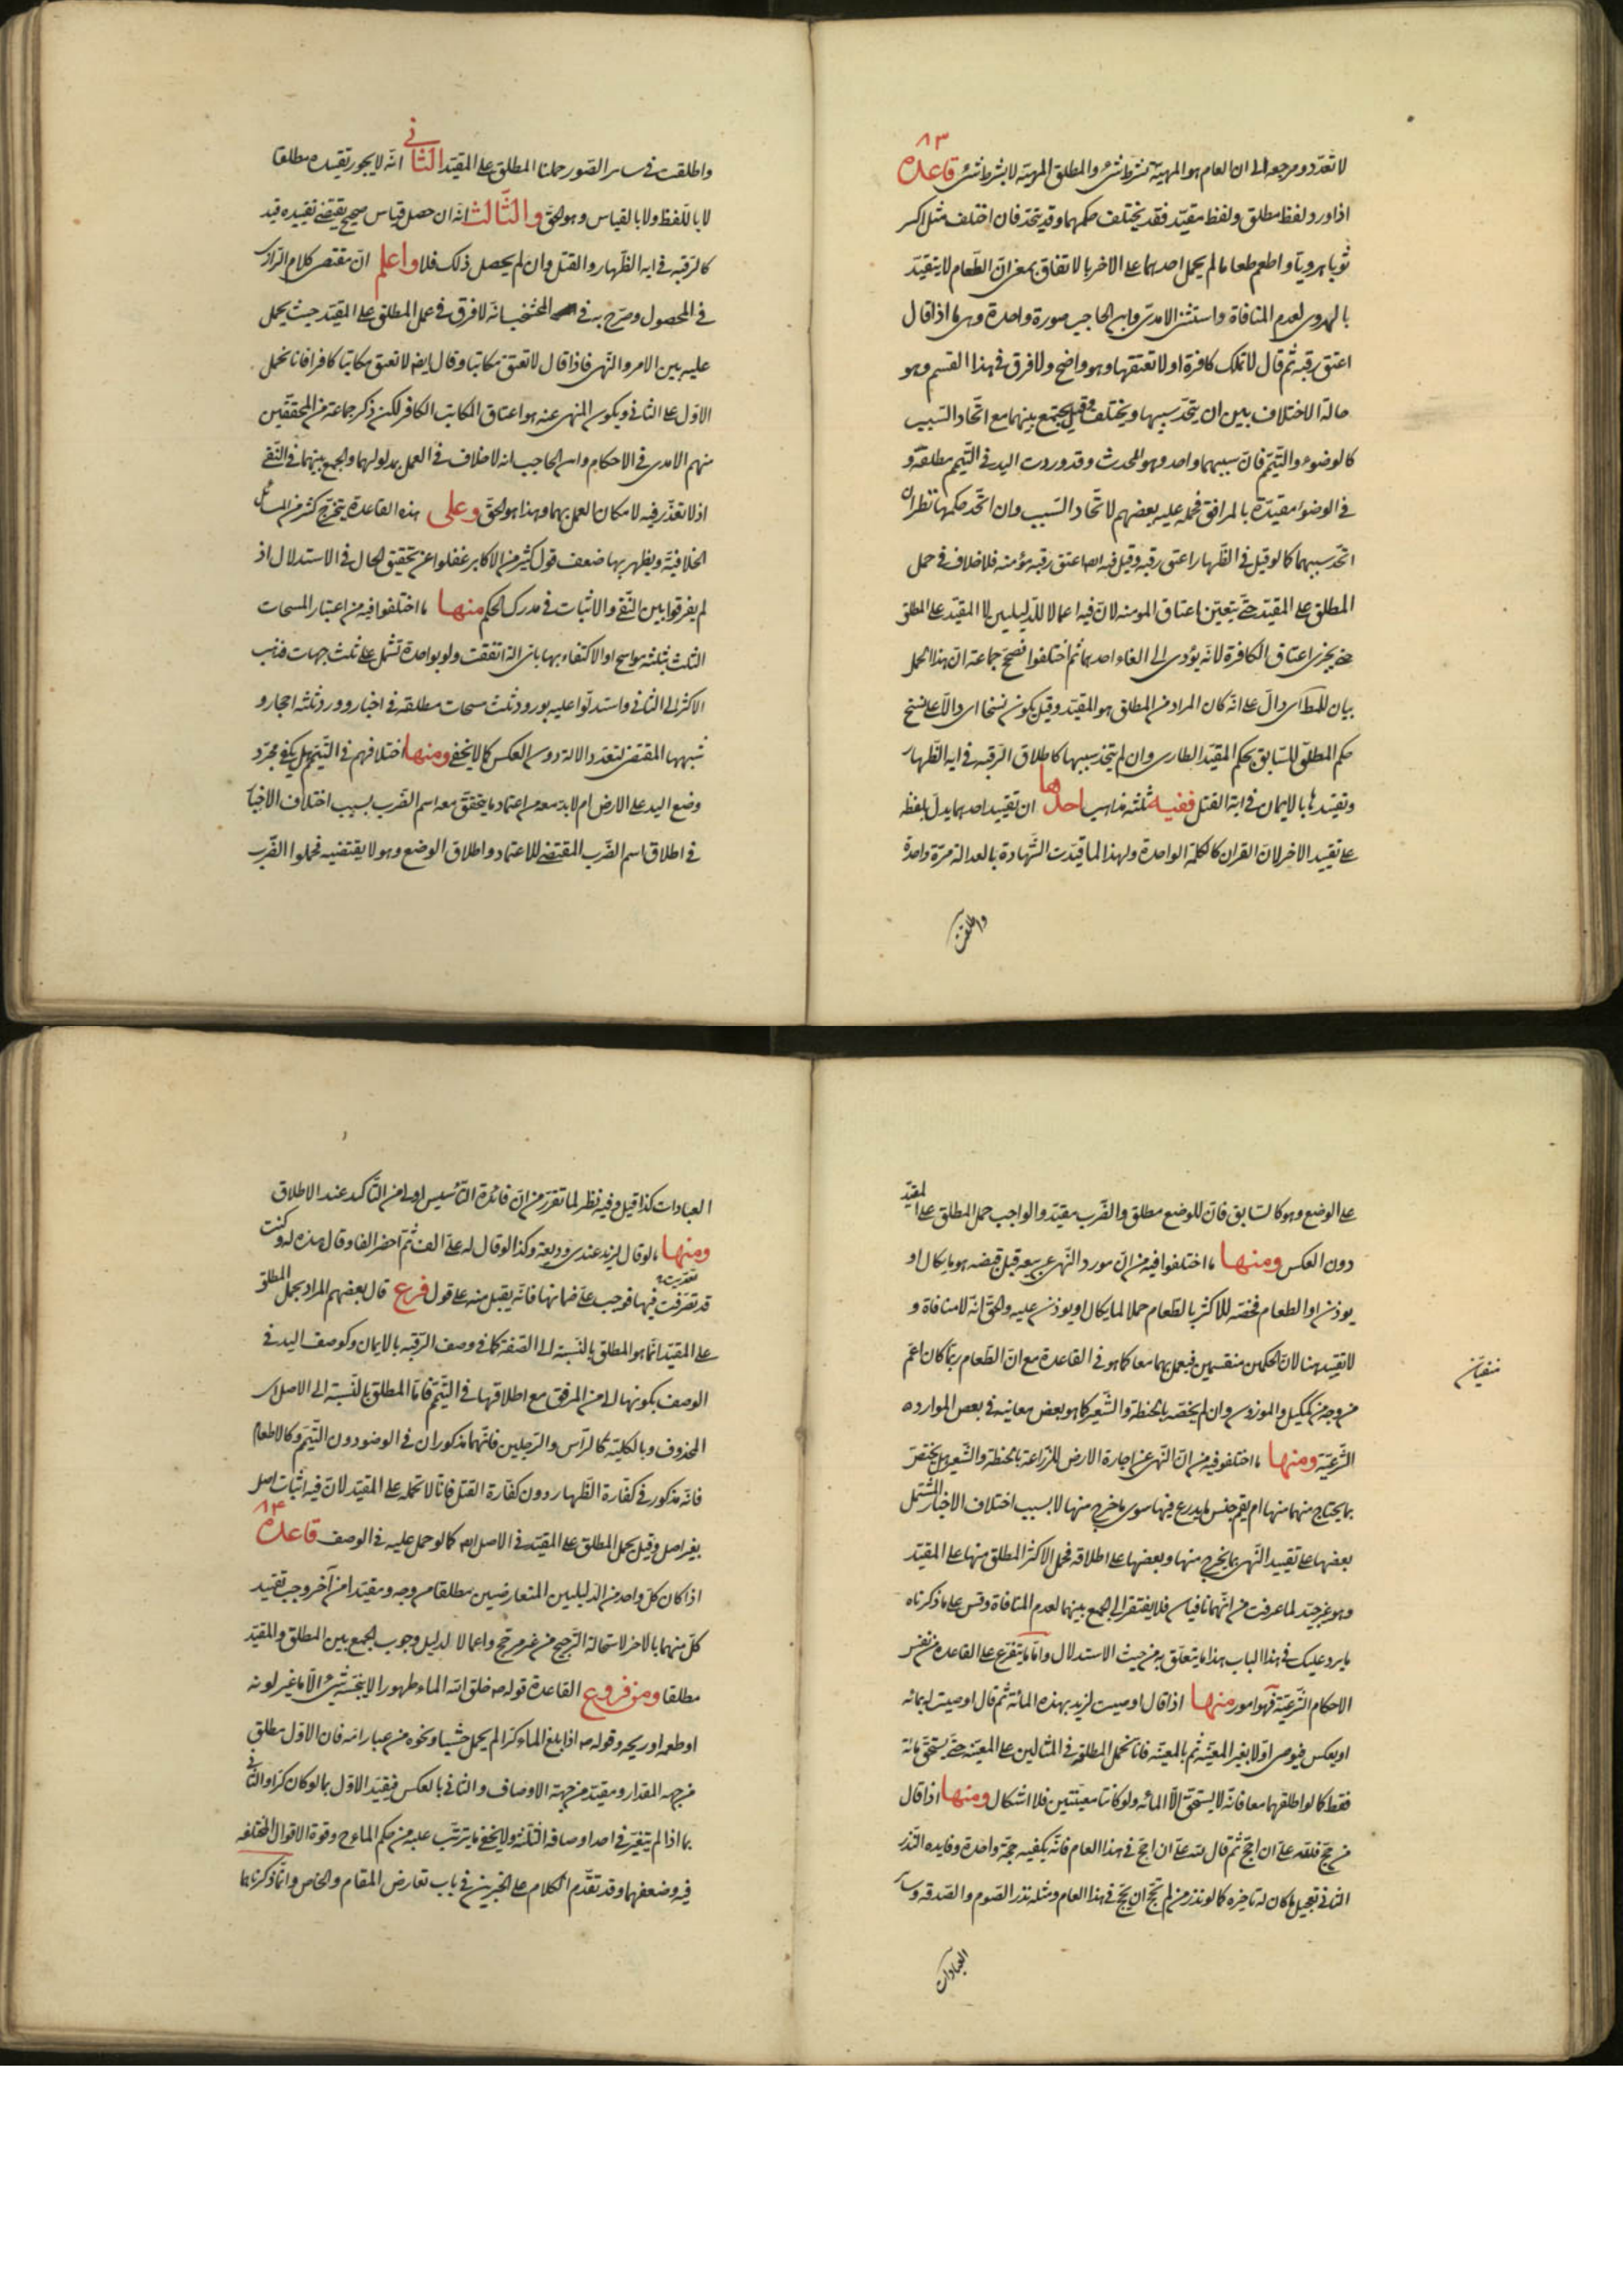 لا تعدد ومرجعه الى ان العام هو المهيّة بشرط شئ والمطلق المهيّة لا بشرط شئ قاعدة ٨٣
اذا ورد لفظ مطلق ولفظ مقيّد فقد يختلف حكمهما وقد يتحد فان اختلف مثل اكس
ثوبا هرويّا واطعم طعاما لم يحمل احدهما على الاخر بالاتفاق بمعنى انّ الطّعام لا يتقيّد
بالهروى لعدم المنافاة واستثنى الامدى وابن الحاجب صورة واحدة وهى ما اذا قال
اعتق رقبه ثم قال لا تملك كافرة او لا تعتقها وهو واضح ولا فرق فى هذا القسم وهو
حالة الاختلاف بين ان يتحد سببهما ويختلف وقيل يجتمع بينهما مع اتّحاد السّبب
كالوضوء والتّيمّم فانّ سببهما واحد وهو الحدث وقد وردت اليد فى التّيمم مطلقة و
فى الوضوء مقيّدة بالمرافق فحمله عليه بعضهم لاتّحاد السّبب وان اتّحد حكمهما نظر ان
اتّحد سببهما كما لو قيل فى الظّهار اعتق رقبه وقيل فيه ايضا اعتق رقبه مؤمنه فلا خلاف فى حمل
المطلق على المقيّد حتّى يتعيّن اعتاق المومنه لانّ فيه اعمالا للدّليلين لا المقيّد على المطلق
حتى يجزى اعتاق الكافرة لانّه يؤدى الى الغاء احدهما ثم اختلفوا فصحّح جماعة انّ هذا الحمل
بيان للمطلق اى دالّ على انّه كان المراد من المطلق هو المقيّد وقيل يكون نسخا اى دالّا على نسخ
حكم المطلق السّابق بحكم المقيّد الطارى وان لم يتحد سببهما كاطلاق الرّقبه فى ايه الظّهار
وتقيّدها بالايمان فى اية القتل ففيه ثلثه مذاهب احدها ان تقييد احدهما يدل بلفظه
على تقييد الاخر لانّ القران كالكلمة الواحدة ولهذا لما قيّدت الشّهادة بالعدالة مرّة واحدة
واطلقت
واطلقت فى ساير الصّور حملنا المطلق على المقيّد الثانى انّه لا يجوز تقييده مطلقا
لا باللّفظ ولا بالقياس وهو الحقّ والثالث انّه ان حصل قياس صحيح يقتضى تقييده قيد
كالرّقبه فى ايه الظّهار والقتل وان لم يحصل ذلك فلا واعلم انّ مقتضى كلام الرّازى
فى المحصول وصرّح به فى المنتخب انّه لا فرق فى حمل المطلق على المقيّد حيث يحمل
عليه بين الامر والنّهى فاذا قال لا تعتق مكاتبا وقال ايضا لا تعتق مكاتبا كافرا فانا نحمل
الاوّل على الثانى ويكون المنهى عنه هو اعتاق المكاتب الكافر لكن ذكر جماعة من المحقّقين
منهم الامدى فى الاحكام وابن الحاجب انه لا خلاف فى العمل بمدلولهما والجمع بينهما فى النّفى
اذ لا تعذّر فيه لامكان العمل بهما وهذا هو الحقّ وعلى هذه القاعدة يتخرّج كثير من المسائل
الخلافيّة ويظهر بها ضعف قول كثير من الاكابر غفلوا عن تحقيق الحال فى الاستدلال اذ
لم يفرقوا بين النّفى والاثبات فى مدرك الحكم منها ما اختلفوا فيه من اعتبار المسحات
الثلث بثلثه مواسح او الاكتفاء بها باى الة اتفقت ولو بواحدة تشتمل على ثلث جهات فذهب
الاكثر الى الثانى واستدلّوا عليه بورود ثلث مسحات مطلقه فى اخبار وورود ثلثه احجار و
شبهها المقتضى لتعدد الالة دون العكس كما لا يخفى ومنها اختلافهم فى التّيمّم هل يكفى مجرّد
وضع اليد على الارض ام لا بدّ معه من اعتماد ما يتحقق معه اسم الضّرب بسبب اختلاف الاخبار
فى اطلاق اسم الضّرب المقتضى للاعتماد واطلاق الوضع وهو لا يقتضيه فحملوا الضّرب
على الوضع وهو كالسّابق فانّ الوضع مطلق والضّرب مقيّد والواجب حمل المطلق على المقيّد
دون العكس ومنها ما اختلفوا فيه من انّ مورد النّهى عن بيعه قبل قبضه هو ما يكال او
يوذن او الطعام فخصّه الاكثر بالطّعام حملا لما يكال او يوذن عليه والحقّ انّه لا منافاة و
لا تقييد هنا لانّ الحكمين منفيين فيعمل بهما معا كما هو فى القاعدة مع انّ الطّعام ربّما كان اعمّ
منفيان
من وجه من المكيل والموزون وان لم يخصّه بالحنطة والشّعير كما هو بعض معانيه فى بعض الموارد ه
الشّرعيّة ومنها ما اختلفو فيه من انّ النّهى عن اجارة الارض للزّراعة بالحنطة والشّعير هل يختصّ
بما يحتاج منهما منها ام يقع جنس ما يزرع فيها سوى ما خرج منها لا بسبب اختلاف الاخبار المشتمل
بعضها على تقييد النّهى بما يخرج منها وبعضها على اطلاقه فحمل الاكثر المطلق منها على المقيّد
وهو غير جيّد لما عرفت من انّهما نافيان فلا يفتقر الى الجمع بينهما لعدم المنافاة وقس على ما ذكرناه
ما يرد عليك فى هذا الباب هذا ما يتعلّق به من حيث الاستدلال وامّا ما يتفرّع على القاعدة من نفس
الاحكام الشّرعيّة فهو امور منها اذا قال اوصيت لزيد بهذه المائة ثم قال اوصيت له بمائه
او بعكس فيوصى اوّلا بغير المعيّنه ثم بالمعيّنه فانا نحمل المطلقة فى المثالين على المعيّنه حتى يستحقّ مائة
فقط كما لو اطلقهما معا فانّه لا يستحقّ الّا المائه ولو كانتا معيّنتين فلا اشكال ومنها اذا قال
من حجّ فلله علىّ ان احجّ ثم قال لله علىّ ان احجّ فى هذا العام فانّه يكفيه حجّة واحدة وفايده النّذر
الثانى تعجيل ما كان له تاخيره كما لو نذر من لم يحجّ ان يحجّ فى هذا العام ومثله نذر الصّوم والصّدقه وساير
العبادات
العبادات كذا قيل وفيه نظر لما تقرّر من انّ فائدة التّأسيس اولى من التّاكيد عند الاطلاق
ومنها ما لو قال لزيد عندى وديعة وكذا لو قال له علىّ الف ثمّ احضر الفا وقال هذه له وكنت
قد تعدّيت فيها فوجب علىّ ضمانها فانّه يقبل منه على قول فرع قال بعضهم المراد بحمل المطلق
على المقيّد انّما هو المطلق بالنّسبة الى الصّفة كما فى وصف الرّقبه بالايمان وكوصف اليد فى
الوصف بكونها الى من المرفق مع اطلاقها فى التّيمّم فامّا المطلق بالنّسبة الى الاصل اى
المحذوف وبالكليّة كالرّاس والرّجلين فانّهما مذكوران فى الوضو دون التّيمّم وكالاطعام
فانّه مذكور فى كفّارة الظّهار دون كفّارة القتل فانّا لا نحمله على المقيّد لانّ فيه اثبات اصل
بغير اصل وقيل يحمل المطلق على المقيّد فى الاصل ايضا كما لو حمل عليه فى الوصف قاعدة ٨٤
اذا كان كلّ واحد من الدّليلين المتعارضين مطلقا من وجه ومقيّدا من آخر وجب تقييد
كلّ منهما بالاخر لاستحالة التّرجيح من غير مرجّح واعمالا لدليل وجوب الجمع بين المطلق والمقيّد
مطلقا ومن فروع القاعدة قوله ص خلق الله الماء طهورا لا ينجّسه شئ الّا ما غيّر لونه
او طعمه او ريحه وقوله ص اذا بلغ الماء كرّا لم يحمل خبثا ونحوه من عباراته فان الاوّل مطلق
من جهه المقدار ومقيّد من جهة الاوصاف والثانى بالعكس فيقيّد الاوّل بما لو كان كرّا والثانى
بما اذا لم يتغيّر فى احد اوصافه الثّلثه ولا يخفى ما يترتّب عليه من حكم الماء ح وقوة الاقوال المختلفه
فيه وضعفهما وقد تقدّم الكلام على الخبرين فى باب تعارض المقام والخاص وانّما ذكرناهما